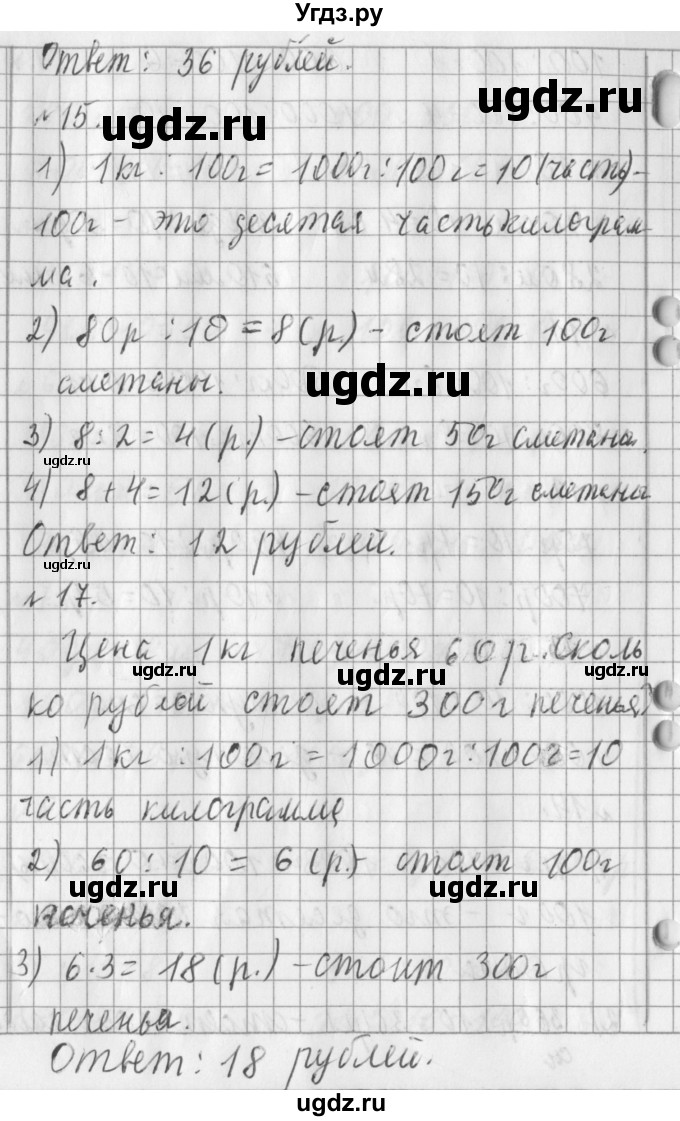 Угдз.ру
Ответ: 36 рублей.
ugdz.ru ugdz.ru
№ 15.
1) 1кг : 100г = 1000г : 100г = 10 (часть) -
100г - это десятая часть килограм-
ма.
2) 80р : 10 = 8 (р.) - стоят 100г
сметаны.
ugdz.ru
3) 8 : 2 = 4 (р.) - стоят 50г сметана.
ugdz.ru
4) 8 + 4 = 12 (р.) - стоят 150г сметаны
Ответ: 12 рублей.
ugdz.ru
№ 17.
Цена 1кг печенья 60р. Сколь
ugdz.ru ugdz.ru ugdz.ru
ко рублой стоят 300г печенья?
1) 1кг : 100г = 1000г : 100г = 10
часть килограмма
2) 60 : 10 = 6 (р.) - стоят 100г
ugdz.ru ugdz.ru
печенья.
3) 6 · 3 = 18 (р.) - стоит 300г
печенья.
Ответ: 18 рублей.
ugdz.ru